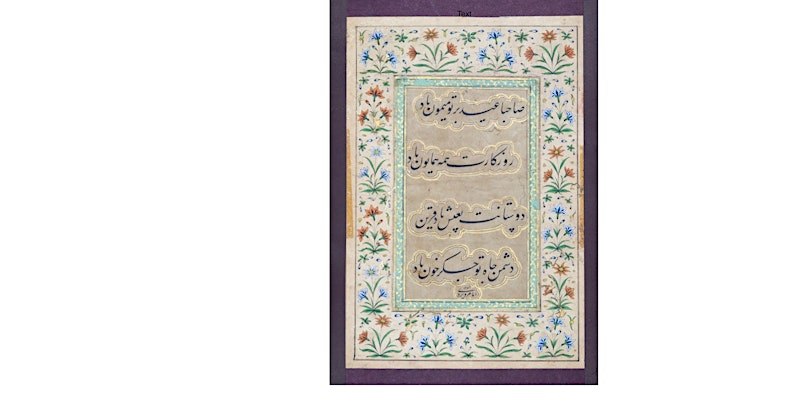 Text
صاحبا عید بر تو میمون باد
روزگارت همه همایون باد
دوستانت بعیش باد قرین
دشمن جاه تو جگر خون باد